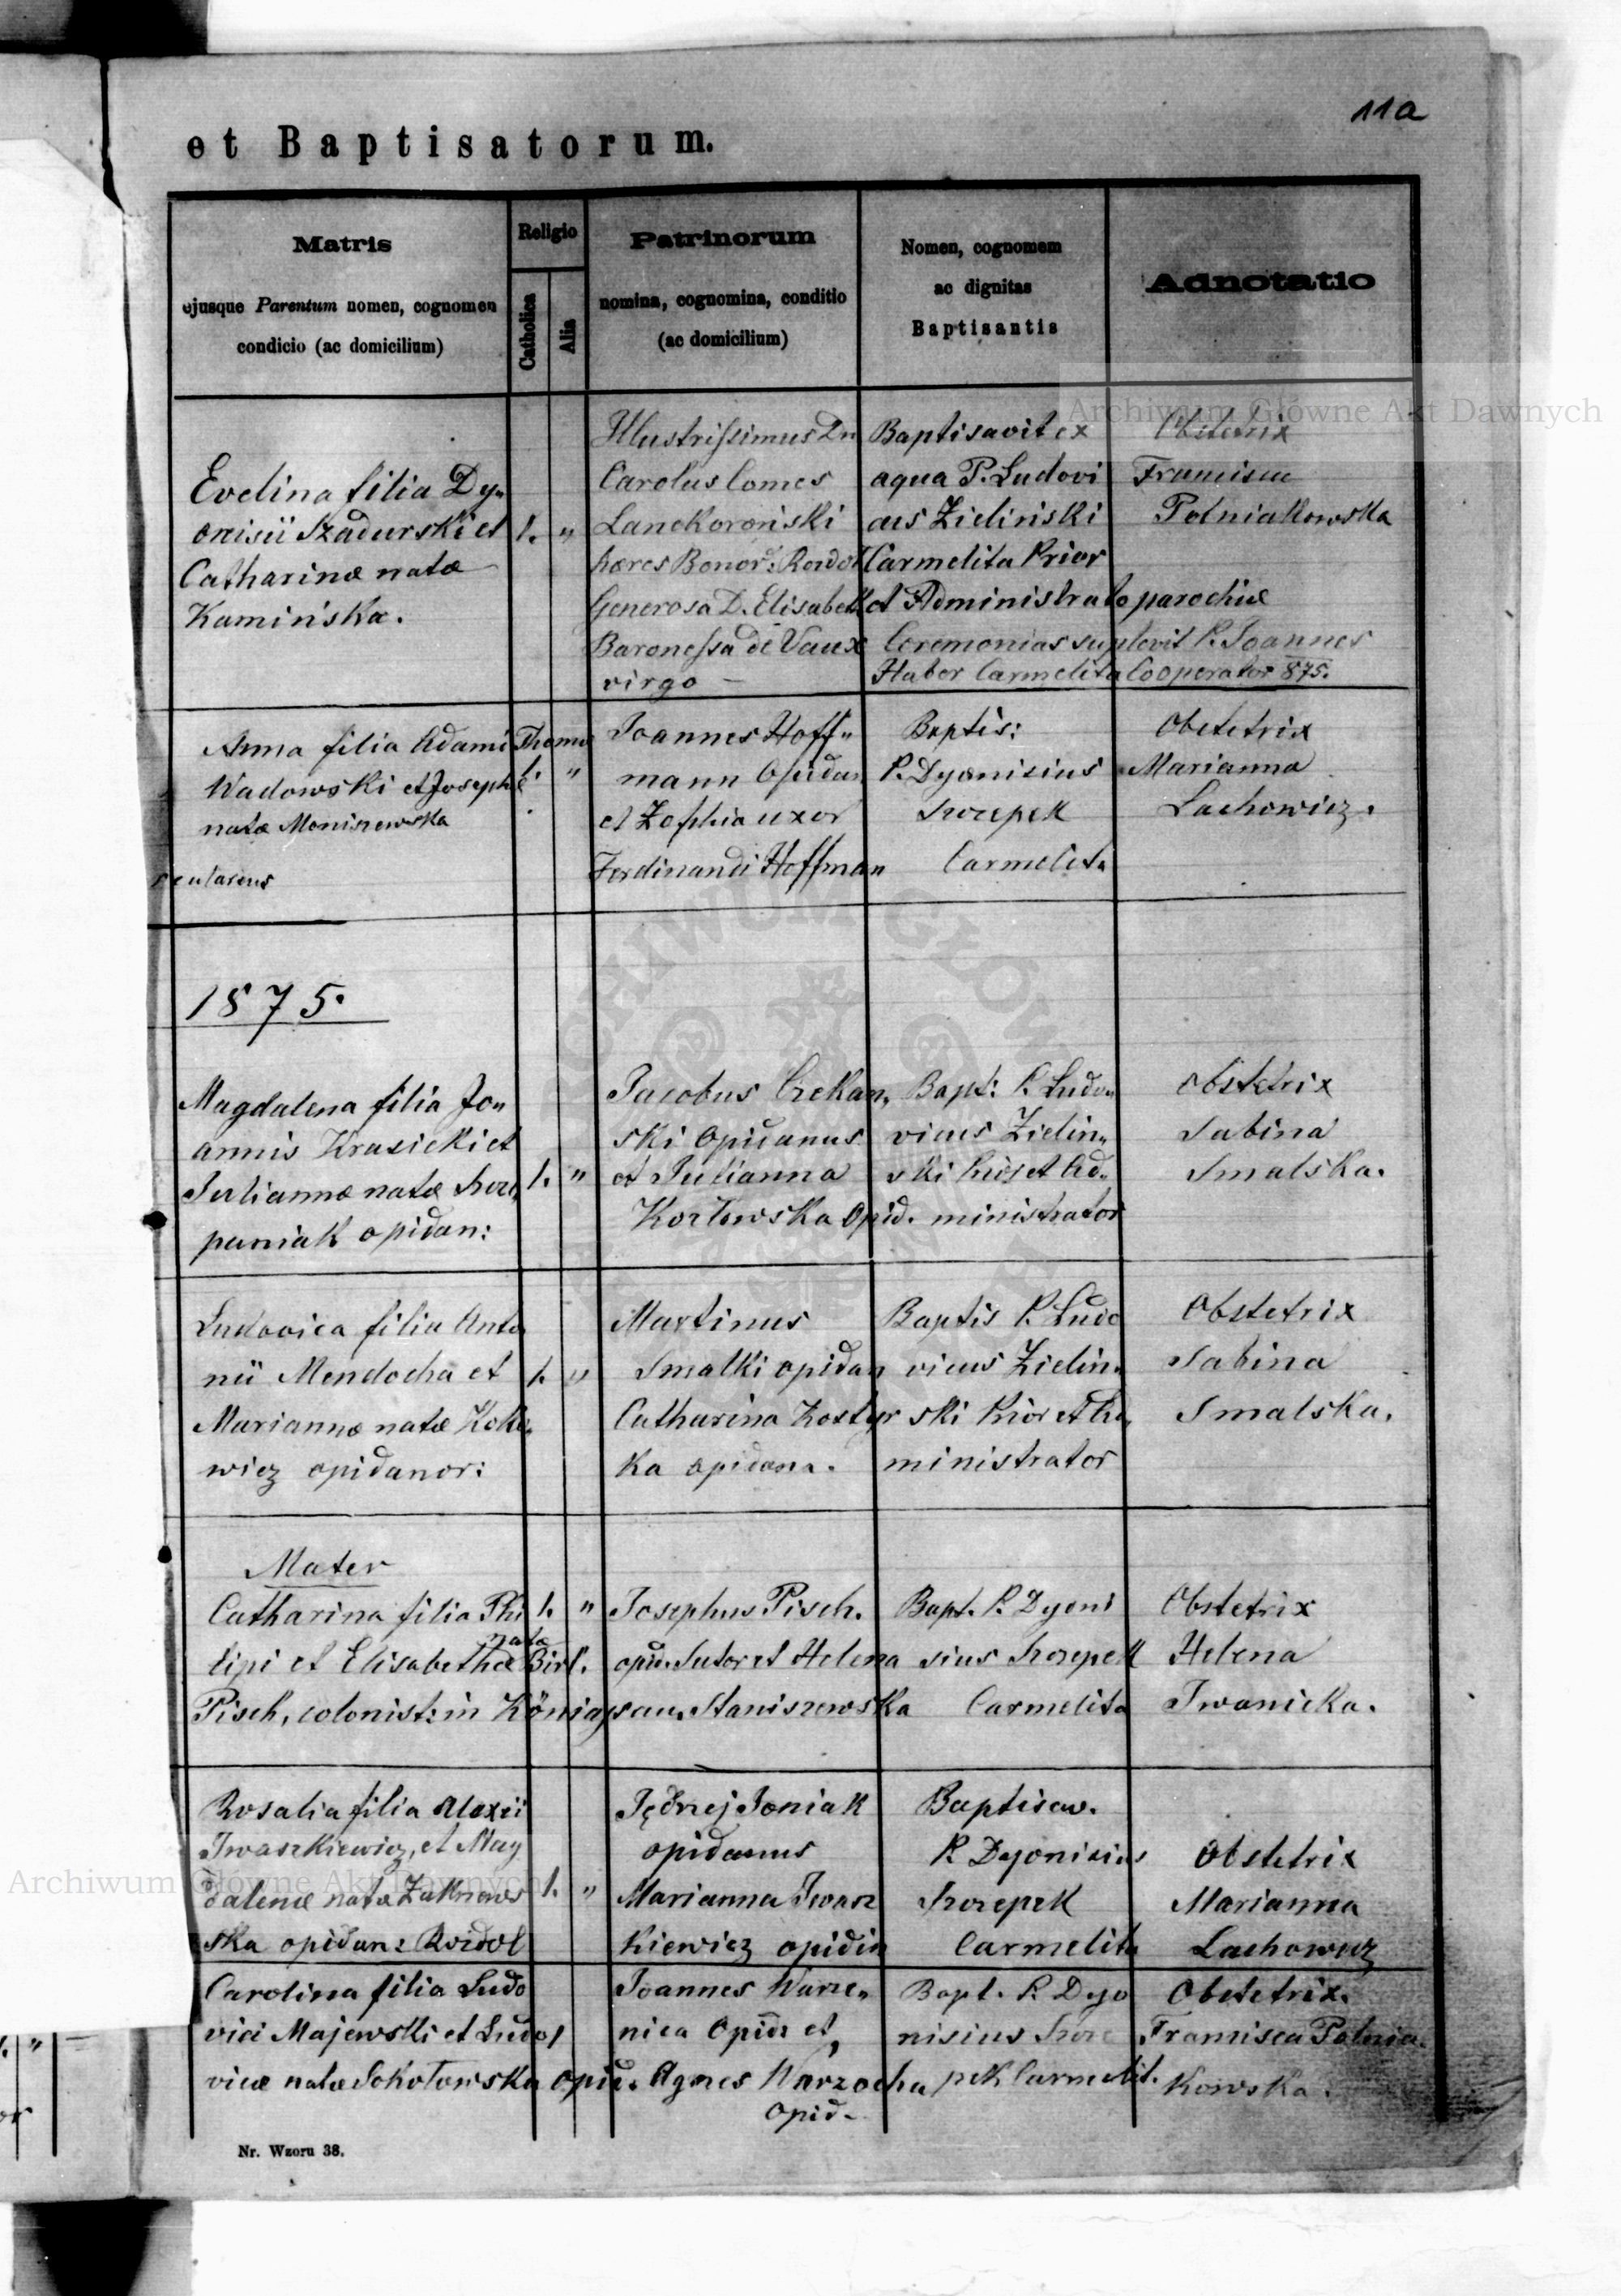 11a
et Baptisatorum.
Matris
ejusque Parentum nomen, cognomen
condicio (ac domicilium)
Religio
Catholica
Alia
Patrinorum
nomina, cognomina, conditio
(ac domicilium)
Nomen, cognomem
ac dignitas
Baptisantis
Adnotatio
Archiwum Główne Akt Dawnych
Evelina filia Dy„
onisii Szadurski et
Catharinæ natæ
Kamińska.
1. „
Illustrissimus Dn
Carolus Comes
Lanckoroński
hæres Bonor: Rozdoł
Generosa D. Elisabeth
Baronessa de Vaux
virgo —
Baptisavit ex
aqua P. Ludovi
cus Zieliński
Carmelita Prior
et Administrato parochiæ
Ceremonias suplevit P. Joannes
Haber Carmelita Cooperator 875.
Obstetrix
Francisca
Polniakowska
Anna filia Adami Thoma
Wadowski et Josephæ
natæ Moniszewska
1. „
Joannes Hoff„
mann Opidan
et Zophia uxor
Ferdinandi Hoffman
Baptis:
P. Dyonisius
Szczepek
Carmelita
Obstetrix
Marianna
Lachowicz.
1875.
Magdalena filia Jo„
annis Krasicki et
Juliannæ natæ Szcze„
paniak opidan:
1. „
Jacobus Czekan„
ski Opidanus
et Julianna
Kozłowska Opid.
Bapt: P. Ludo„
vicus Zielin„
ski Prior et Ad„
ministrator
Obstetrix
Sabina
Smalska.
Ludovica filia Anto
nii Mendocha et
Mariannæ natæ
wicz opidanor:
1. „
Martinus
Smalki opidan
Catharina Kostyr
ka opidana.
Baptis P. Ludo
vicus Zielin„
ski Prior et Ad„
ministrator
Obstetrix
Sabina
Smalska.
Mater
Catharina filia Phi
lipi et Elisabethæ natæ Birl.
Pisch, colonist: in Königsau.
1. „
Josephus Pisch.
opid. Sutor et Helena
Staniszewska
Bapt. P. Dyoni
sius Szczepek
Carmelita
Obstetrix
Helena
Iwanicka.
Rosalia filia Alexii
Iwaszkiewicz, et Mag
dalenæ natæ Zakrzews
ska opidan: Rozdol
1. „
Jędrzej Joniak
opidanus
Marianna Iwasz
kiewicz opidin
Baptisav.
P. Dyonisius
Szczepek
Carmelita
Obstetrix
Marianna
Lachowicz
Archiwum Główne Akt Dawnych
Carolina filia Ludo
vici Majewski et Ludo
vicæ natæ Sokołowska opid.
Joannes Warze„
nica Opid: et
Agnes Warzocha
Opid.
Bapt. P. Dyo
nisius Szcze
pek Carmelit.
Obstetrix
Francisca Polnia„
kowska.
Nr. Wzoru 38.